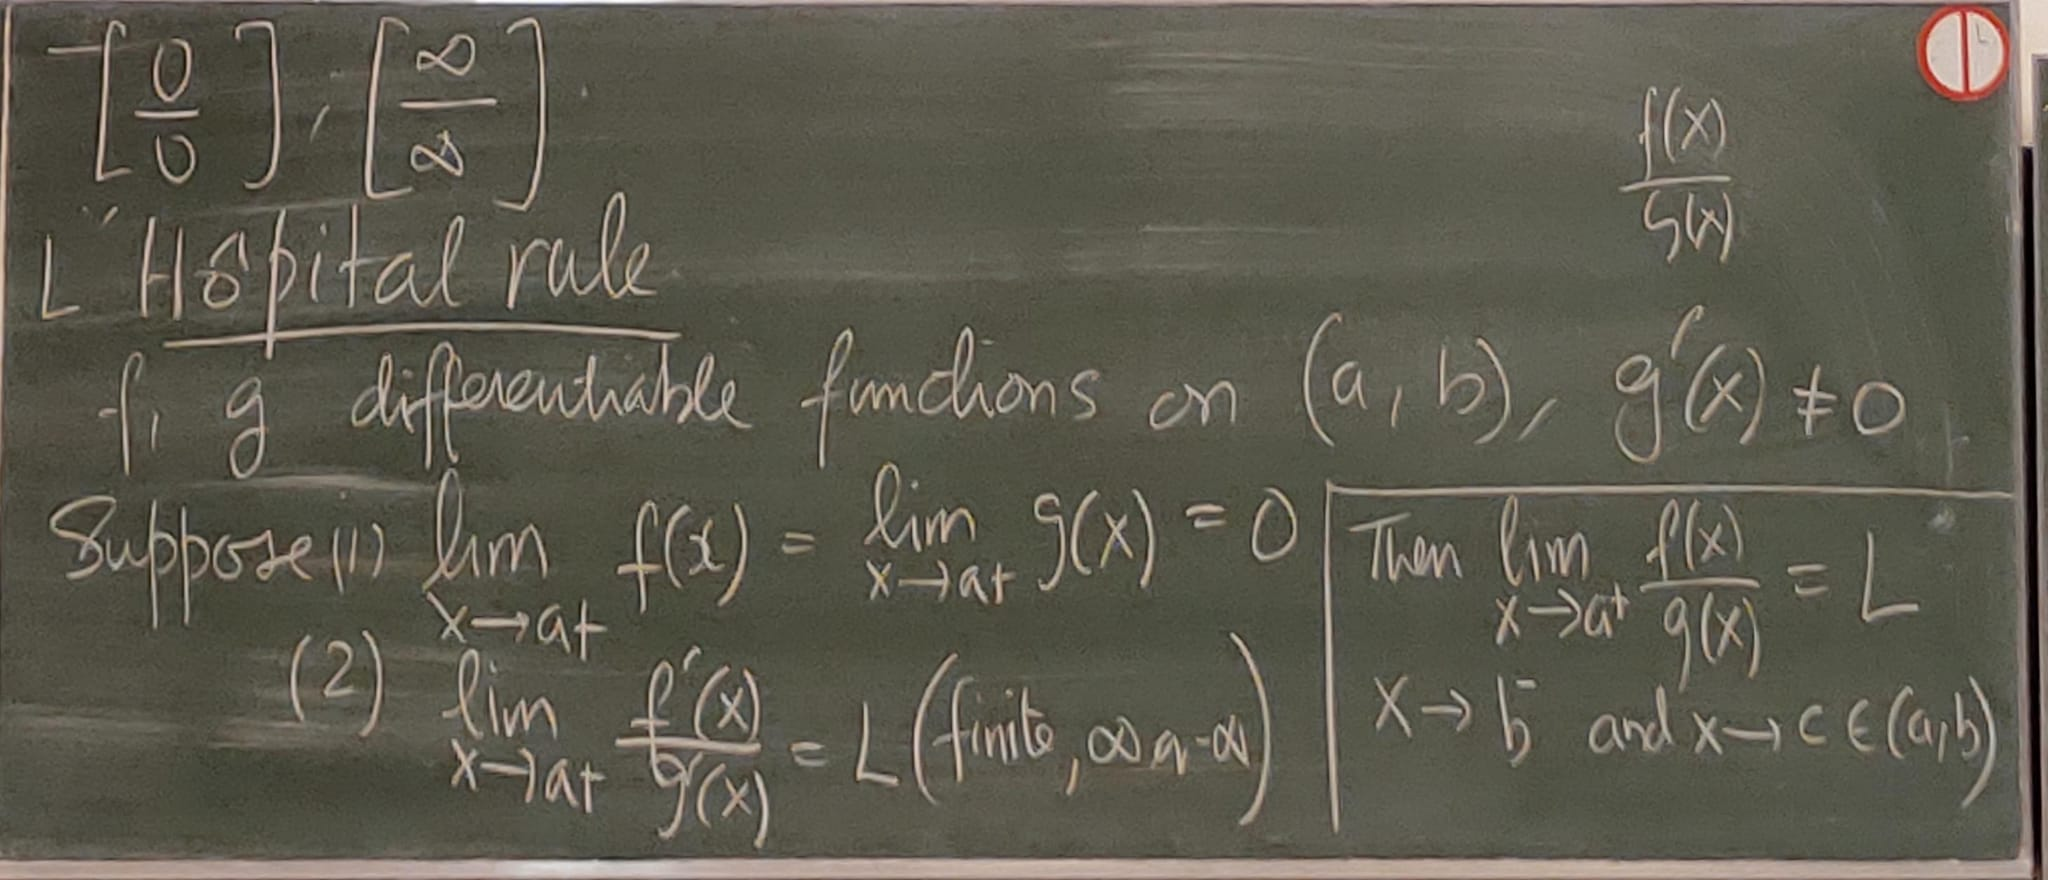 [0/0], [∞/∞].
f(x)/g(x)
L'Hôpital rule
f, g differentiable functions on (a, b), g'(x) ≠ 0
Suppose (1) lim x→a+ f(x) = lim x→a+ g(x) = 0
(2) lim x→a+ f'(x)/g'(x) = L (finite, ∞ or -∞)
Then lim x→a+ f(x)/g(x) = L
x → b- and x → c ∈ (a, b)